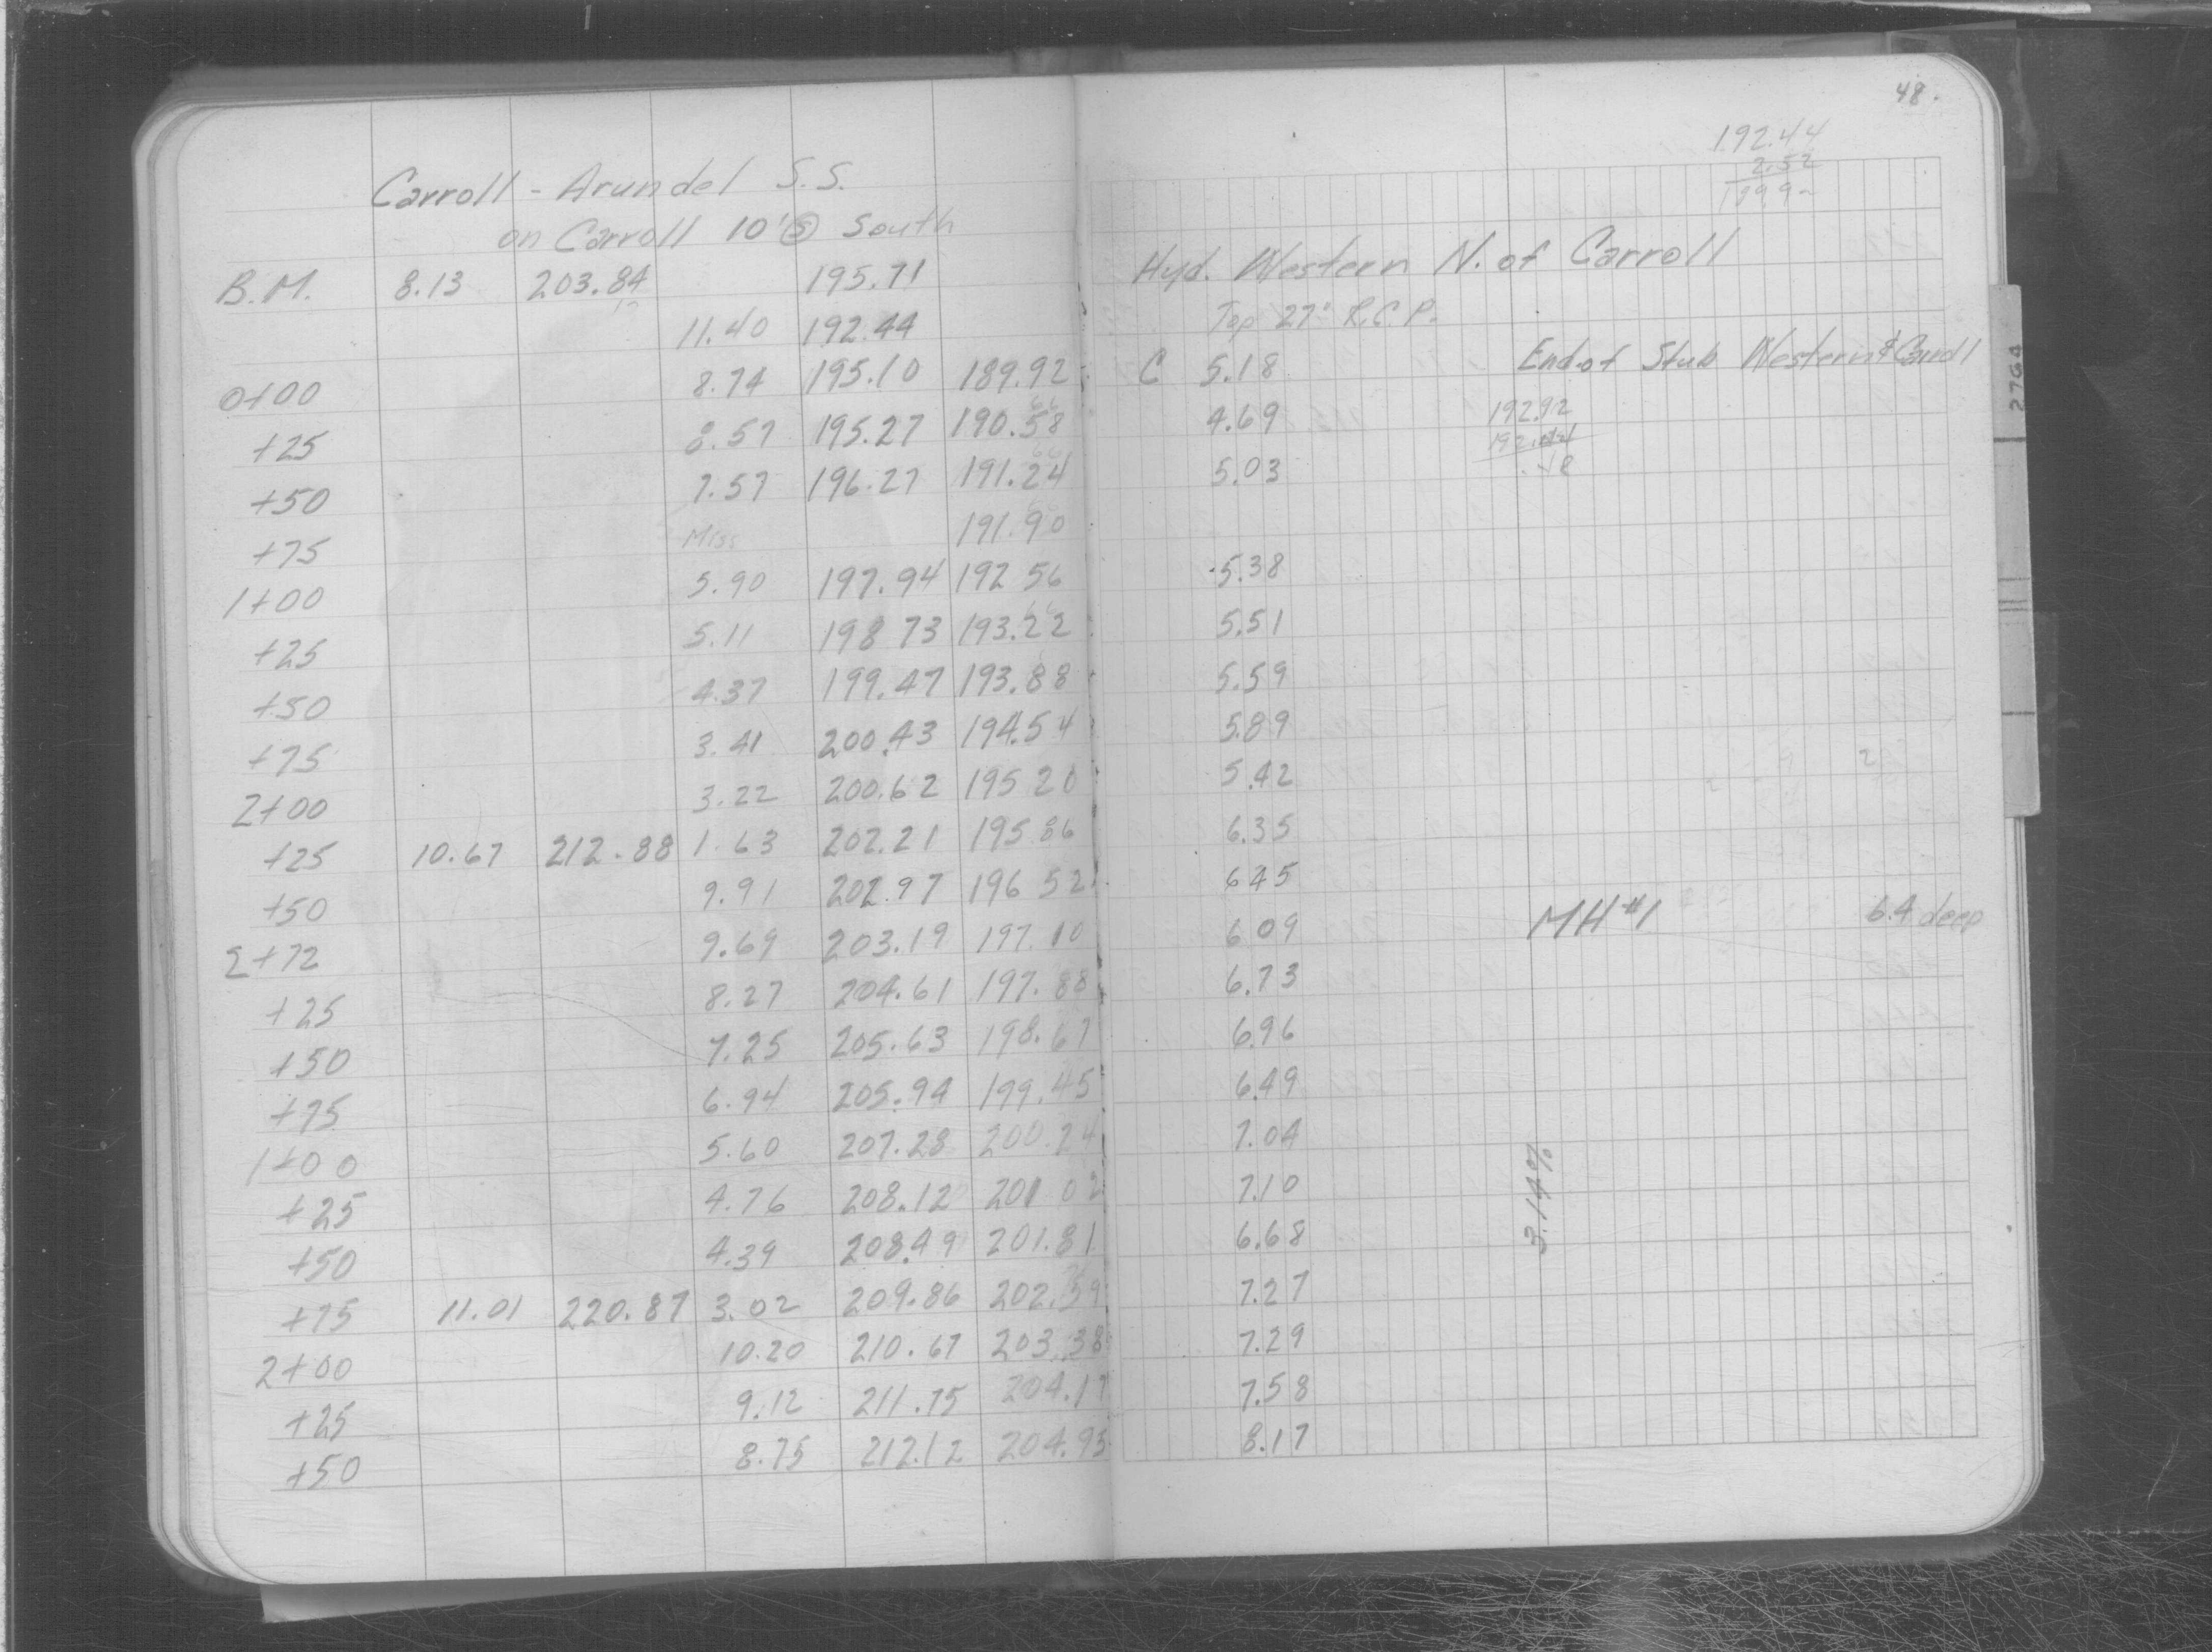 48.
192.44
2.52
Carroll - Arundel S.S.
on Carroll 10' Ⓢ South
B.M. 8.13 203.84 195.71 Hyd. Western N. of Carroll
11.40 192.44 Top 27" R.C.P.
0+00 8.74 195.10 189.92 C 5.18 End of Stub Western & Carroll
+25 8.57 195.27 190.58 4.69 192.92
192.44
+50 7.57 196.27 191.24 5.03 .48
+75 Miss 191.90
1+00 5.90 197.94 192 56 5.38
+25 5.11 198 73 193.22 5.51
+50 4.37 199.47 193.88 5.59
+75 3.41 200.43 194.54 5.89
2+00 3.22 200.62 195 20 5.42
+25 10.67 212.88 1.63 202.21 195 86 6.35
+50 9.91 202.97 196 52 6.45
2+72 9.69 203.19 197.10 6 09 MH #1 6.4 deep
+25 8.27 204.61 197.88 6.73
+50 7.25 205.63 198.67 6.96
+75 6.94 205.94 199.45 6.49
1+00 5.60 207.28 200.24 7.04
+25 4.76 208.12 201 02 7.10
3.14%
+50 4.39 208.49 201.81 6.68
+75 11.01 220.87 3.02 209.86 202.59 7.27
2+00 10.20 210.67 203.38 7.29
+25 9.12 211.75 204.17 7.58
+50 8.75 212.12 204.95 8.17
2764